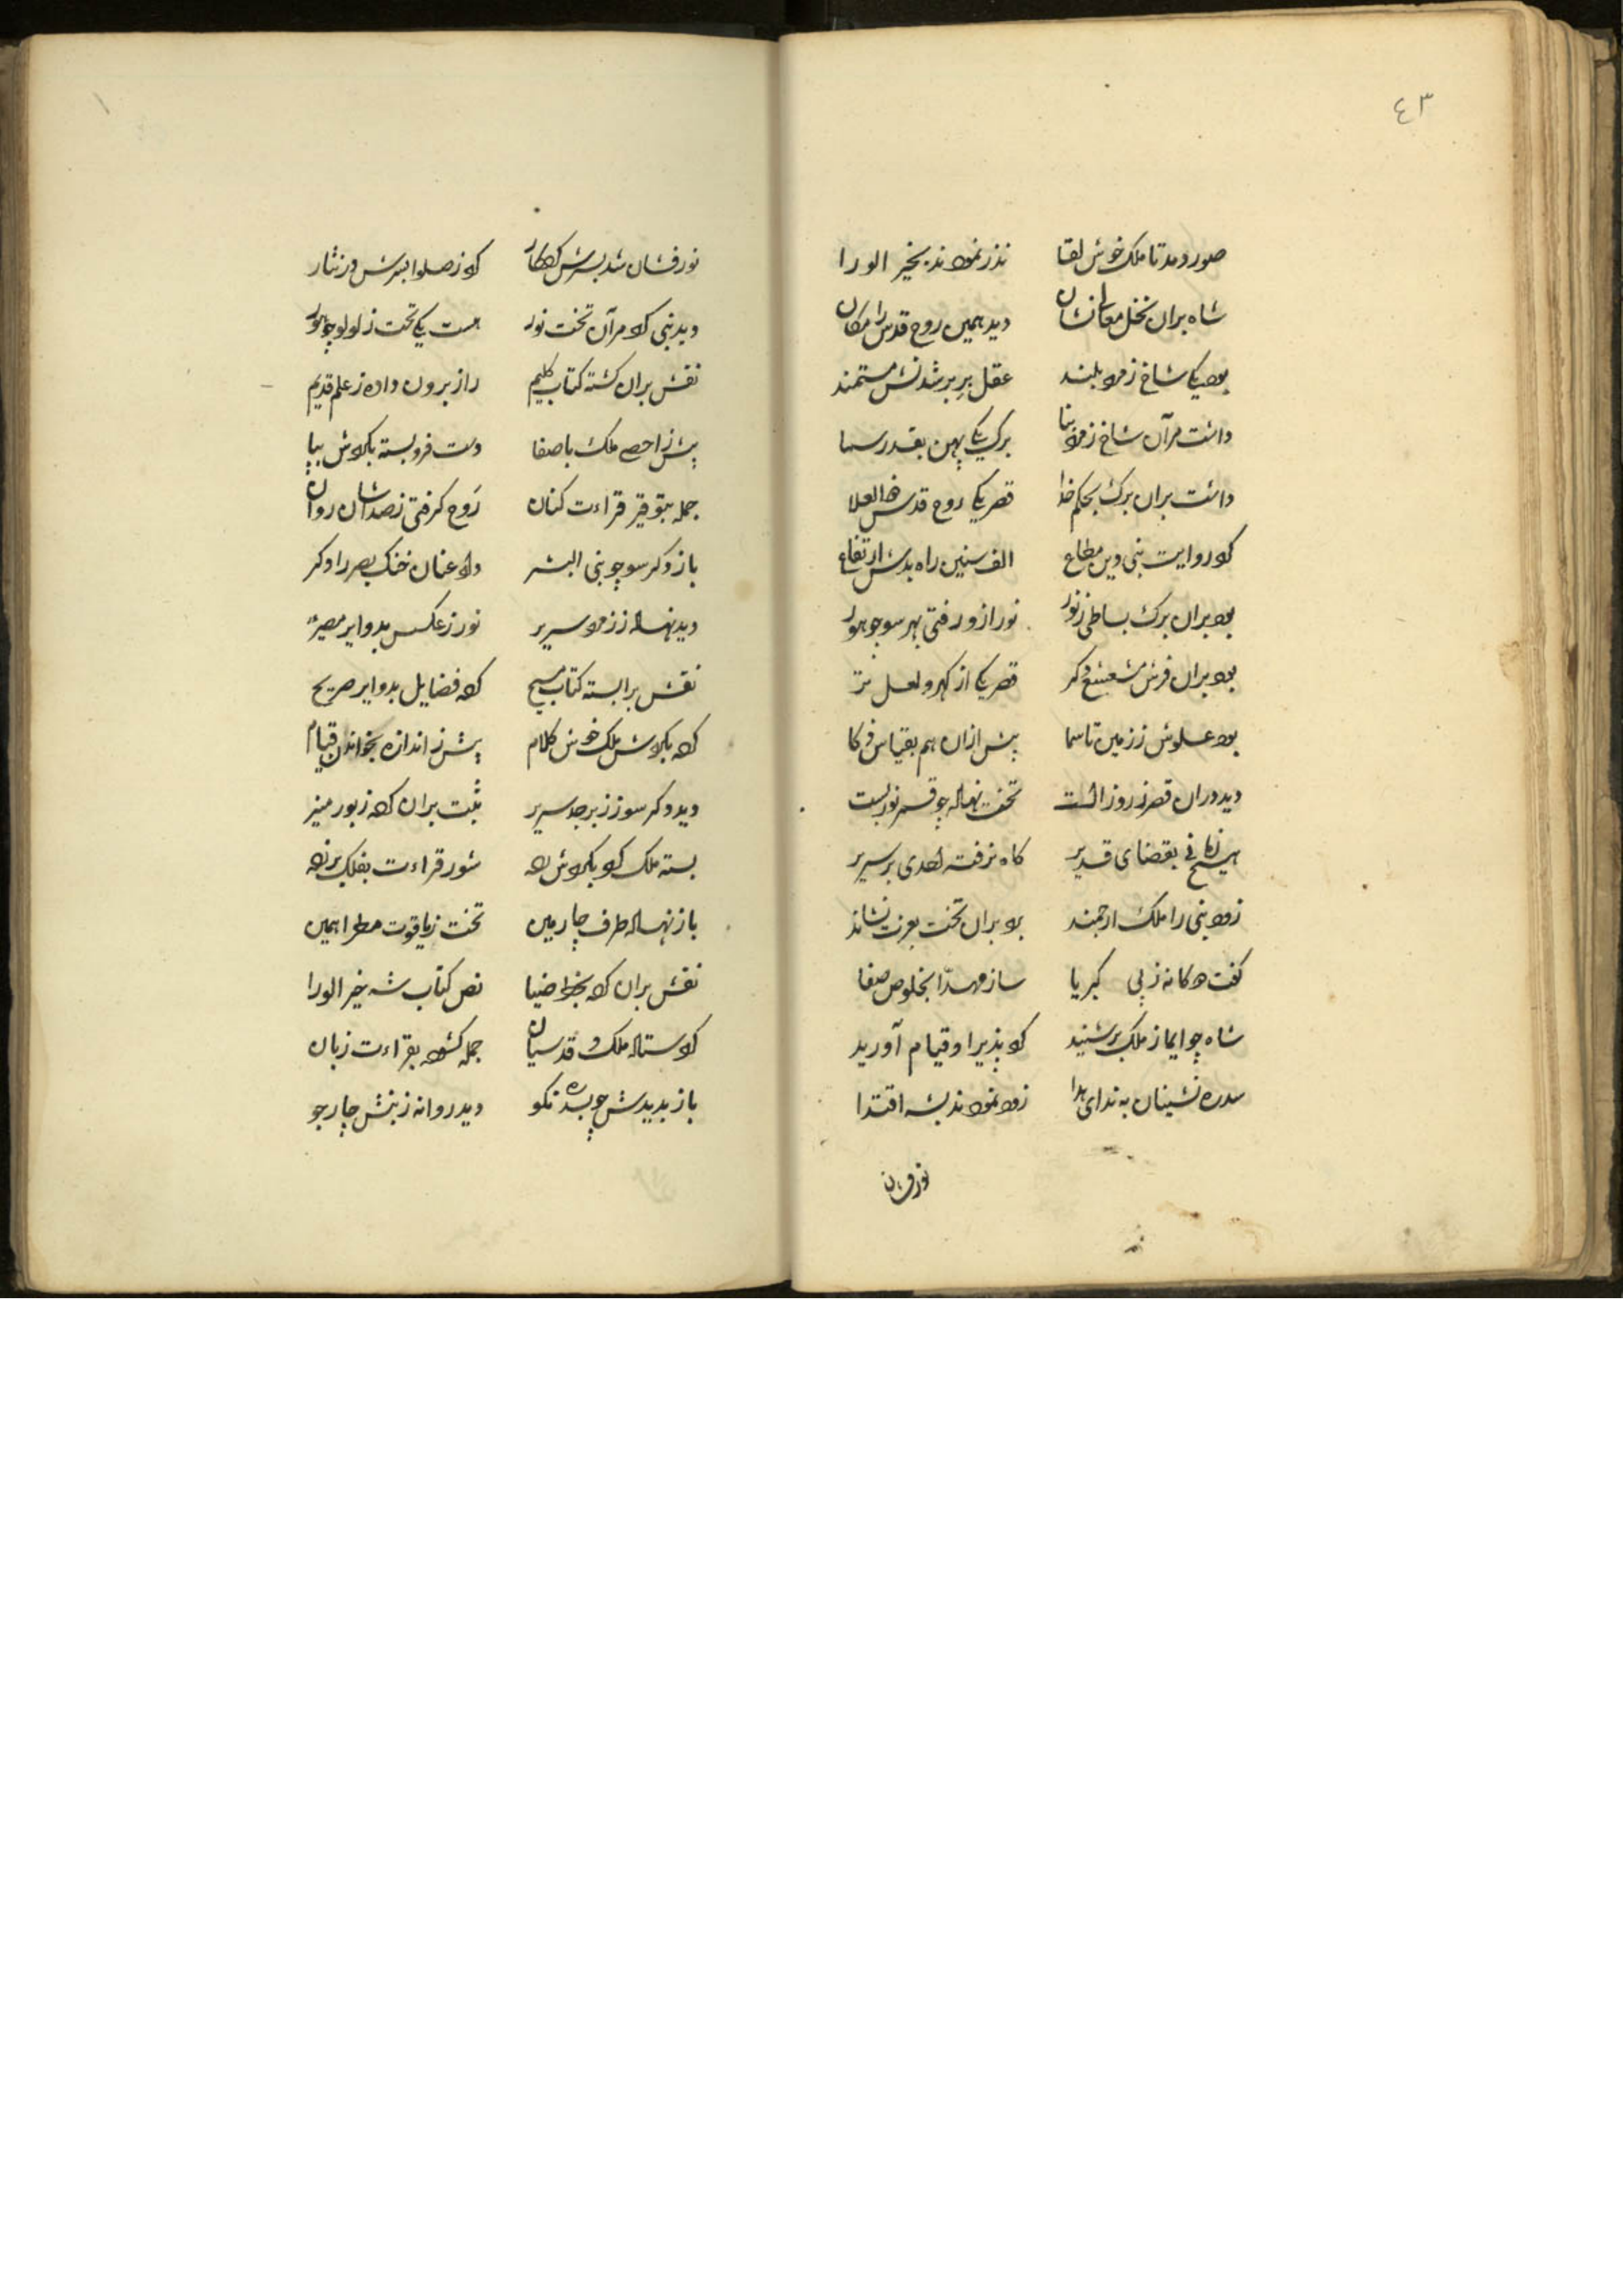 ٤٣
صور دمد تا ملک خوش لقا نذر نمودند بخیر الورا
شاه بران نخل معانشان دید همین روح قدس را مکان
بود یکی شاخ زمرد بلند عقل بر بر شدنش مستمند
داشت مرآن شاخ زمرد نما برک یکی پهن بقدر سما
داشت بران برک بحکم خدا قصر یکی روح قدس
کرد روایت نبی دین مطاع الف سنین راه بدش ارتفاع
بود بران برک بساطی ز نور نور ازو رفتی بهر سو چو هور
بود بران فرش مشعشع دکر قصر یکی از کهر و لعل تر
بود علوش ز زمین تا سما بیش ازان هم بقیاس ذکا
دید دران قصر ز روز الست تخت نهاده چو قمر نور بست
بقضای قدیر کاه نرفته احدی بر سریر
زود نبی را ملک ارجمند برد بران تخت بعزت نشاند
کفت دوکانه ز پی کبریا ساز مهدّا بخلوص صفا
شاه چو ایما ز ملک بر شنید کرد پذیرا و قیام آورید
سدره نشینان به ندای هدا زود نمودند بشه اقتدا
نورفشان
نورفشان شد بسرش کردکار کرد ز صلوا بسرش در نثار
دید نبی کرد مرآن تخت نور هست یکی تخت ز لولو چو هور
نقش بران کشته کتاب کلیم راز برون داده ز علم قدیم
بیش ز احصی ملک با صفا دست فرو بسته بکردش بپا
جمله بتوقیر قراءت کنان رَوح کرفتی ز صداشان روان
باز دکر سو چو نبی البشر داد عنان خنک بصر را دکر
دید نهاده ز زمرد سریر نور ز عکسش بدوایر
نقش برابسته کتاب مسیح کرد فضایل بدوایر صریح
کرد بکردش ملک خوش کلام بیش ز اندازه بخواندن قیام
دید دکر سو ز زبرجد سریر ثبت بران کرده زبور منیر
بسته ملک کرد بکردش رده شور قراءت بفلک بر زده
باز نهاده طرف چارمین تخت ز یاقوت مطرا همین
نقش بران کرده بخط ضیا نص کتاب شه خیر الورا
کرد ستاده ملک و قدسیان جمله کشوده بقراءت زبان
باز بدیدش چو بسدره نکو دید روانه ز بنش چار جو